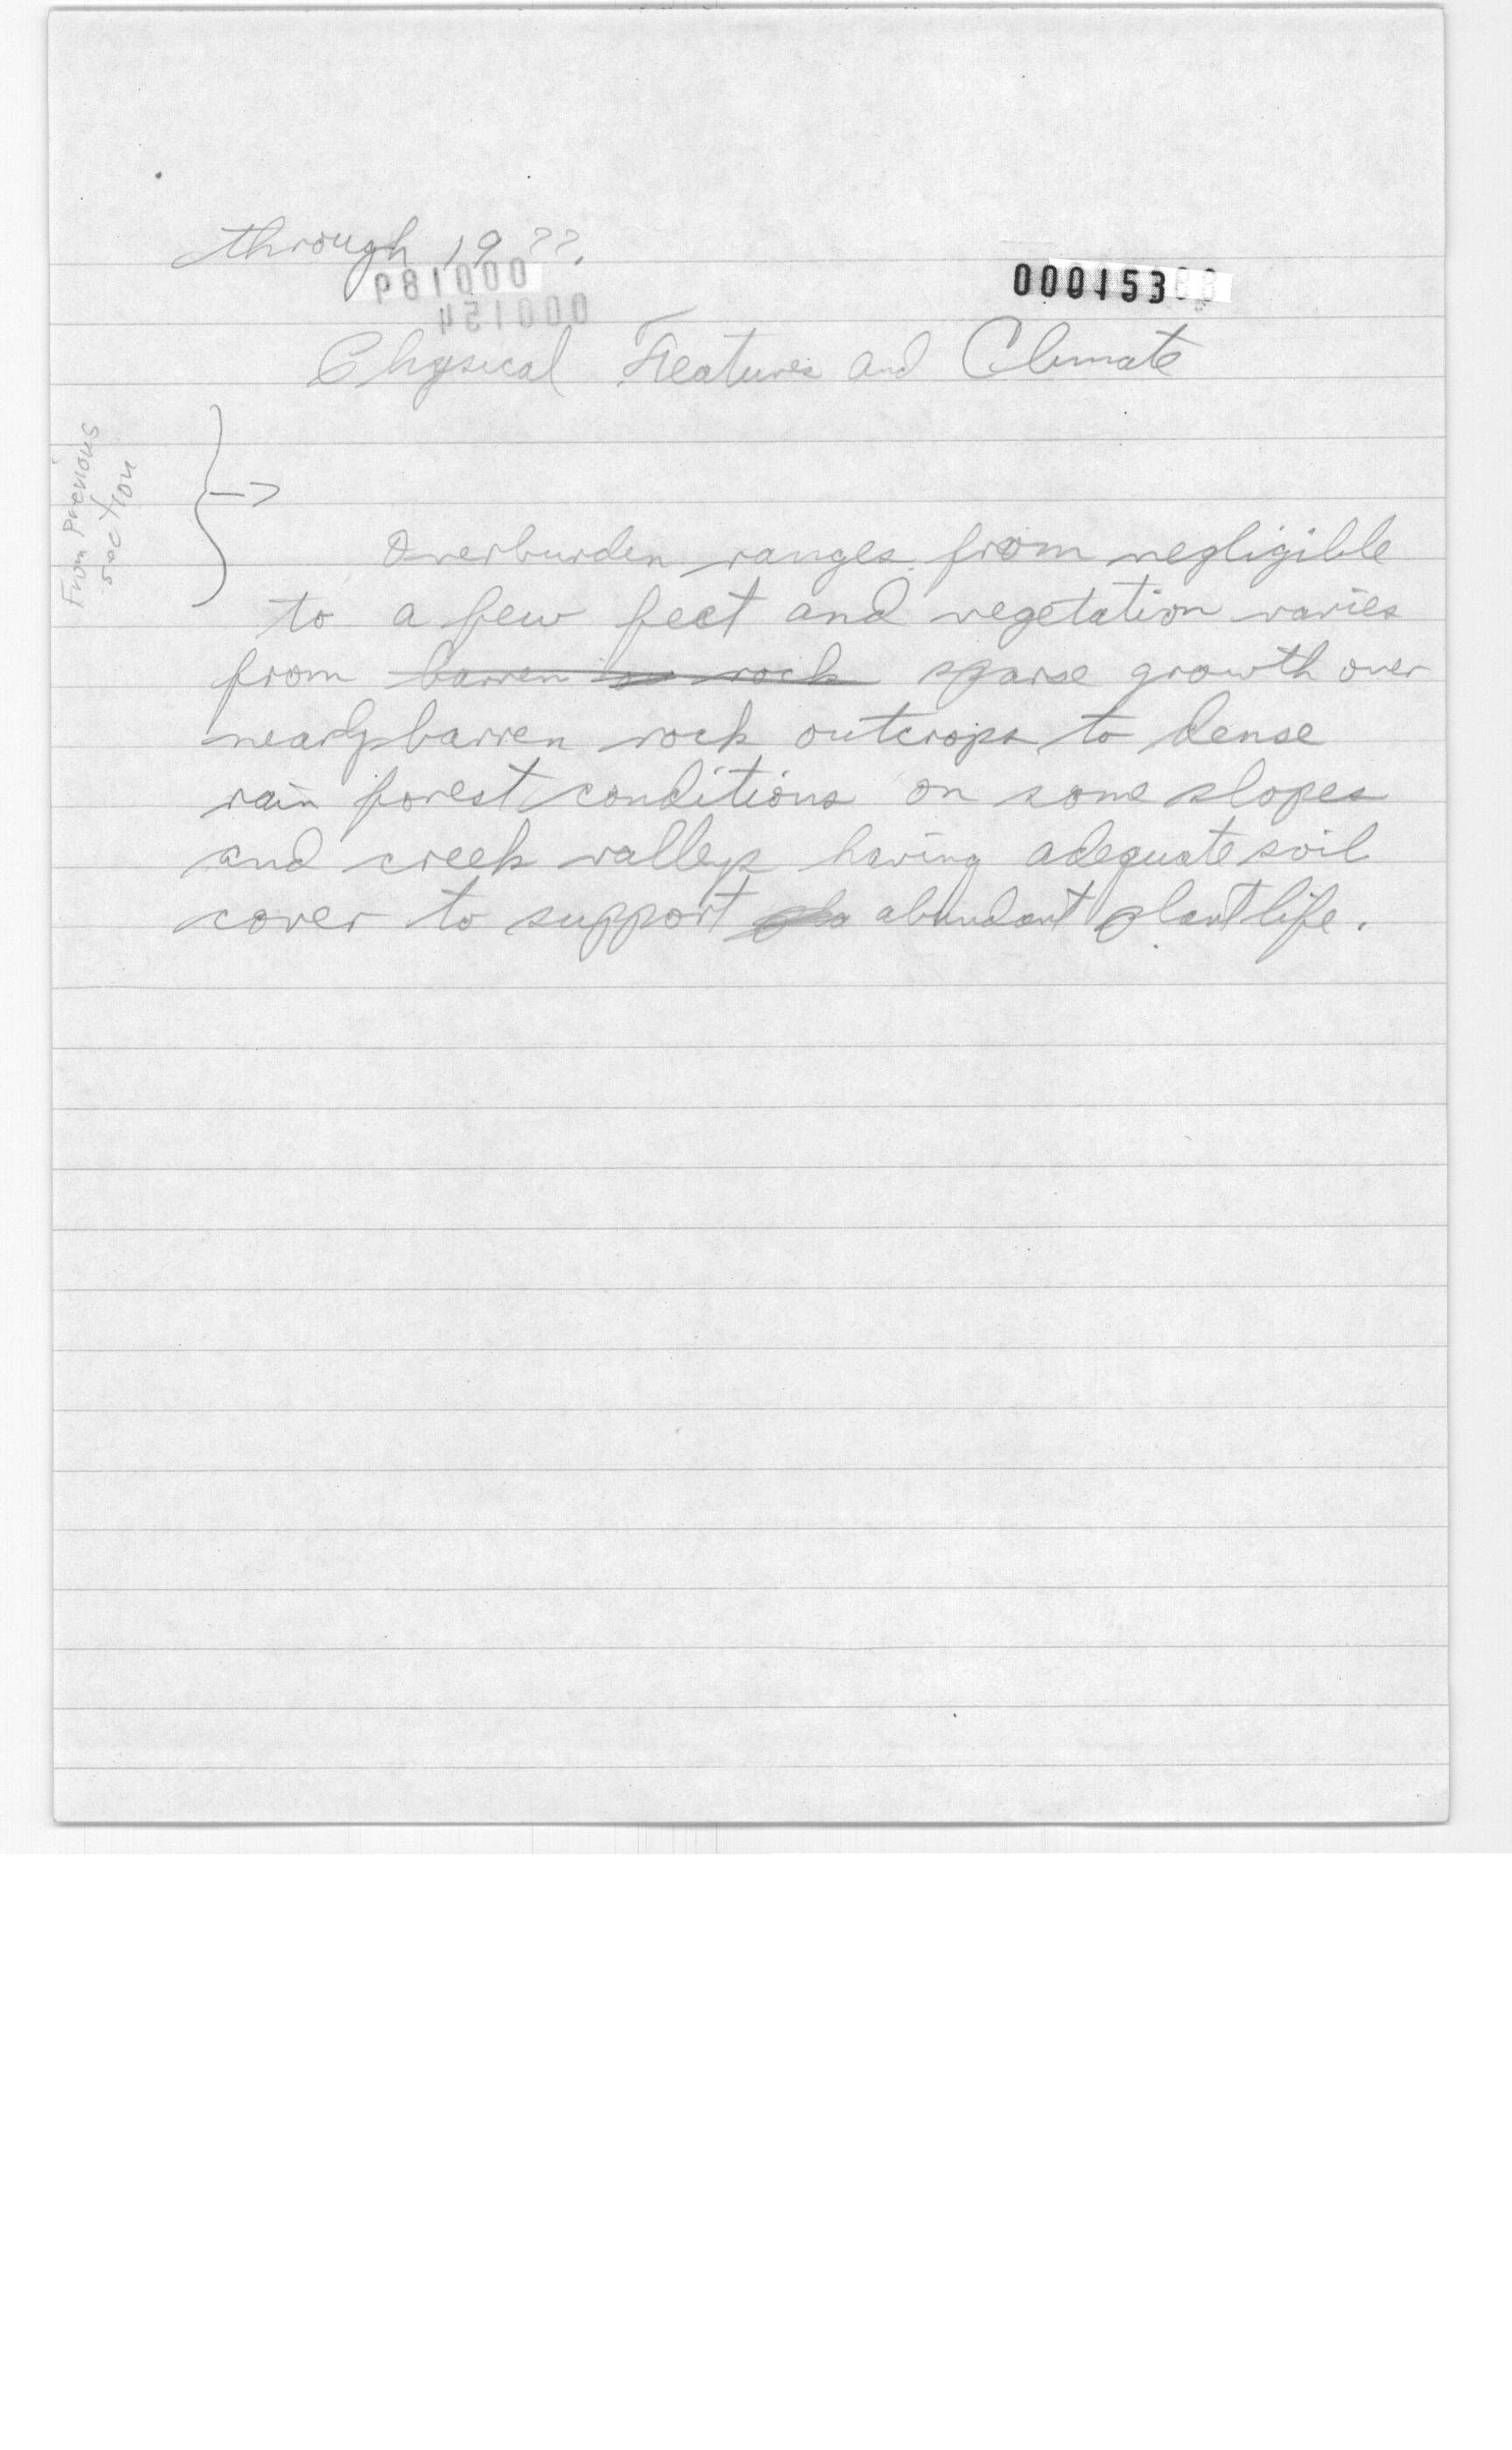 through 19??.
000153
Physical Features and Climate
From Previous
section
Overburden ranges from negligible
to a few feet and vegetation varies
from barren rock sparse growth over
nearly barren rock outcrops to dense
rain forest conditions on some slopes
and creek valleys having adequate soil
cover to support abundant plant life.